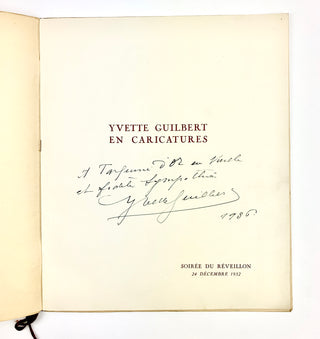 YVETTE GUILBERT
EN CARICATURES
A d'Or en
et fidèle Sympathie
Yvette Guilbert
1936
SOIRÉE DU RÉVEILLON
24 DÉCEMBRE 1932